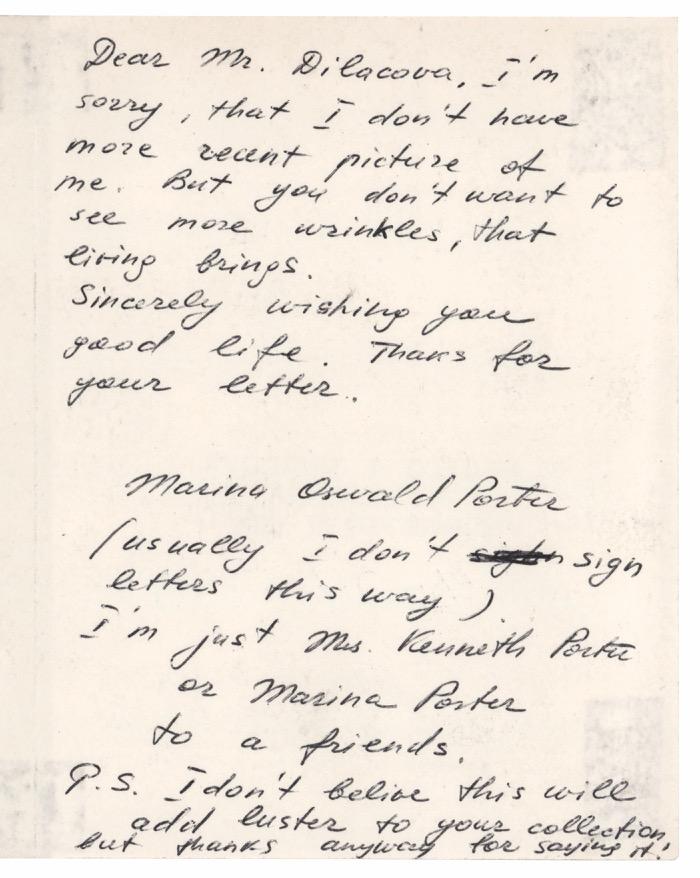 Dear Mr. Dilacova, I'm
sorry, that I don't have
more recent picture of
me. But you don't want to
see more wrinkles, that
living brings.
Sincerely wishing you
good life. Thaks for
your letter.
Marina Oswald Porter
(usually I don't sign
letters this way)
I'm just Mrs. Kenneth Porter
or Marina Porter
to a friends.
P.S. I don't belive this will
add luster to your collection,
but thanks anyway for saying it!